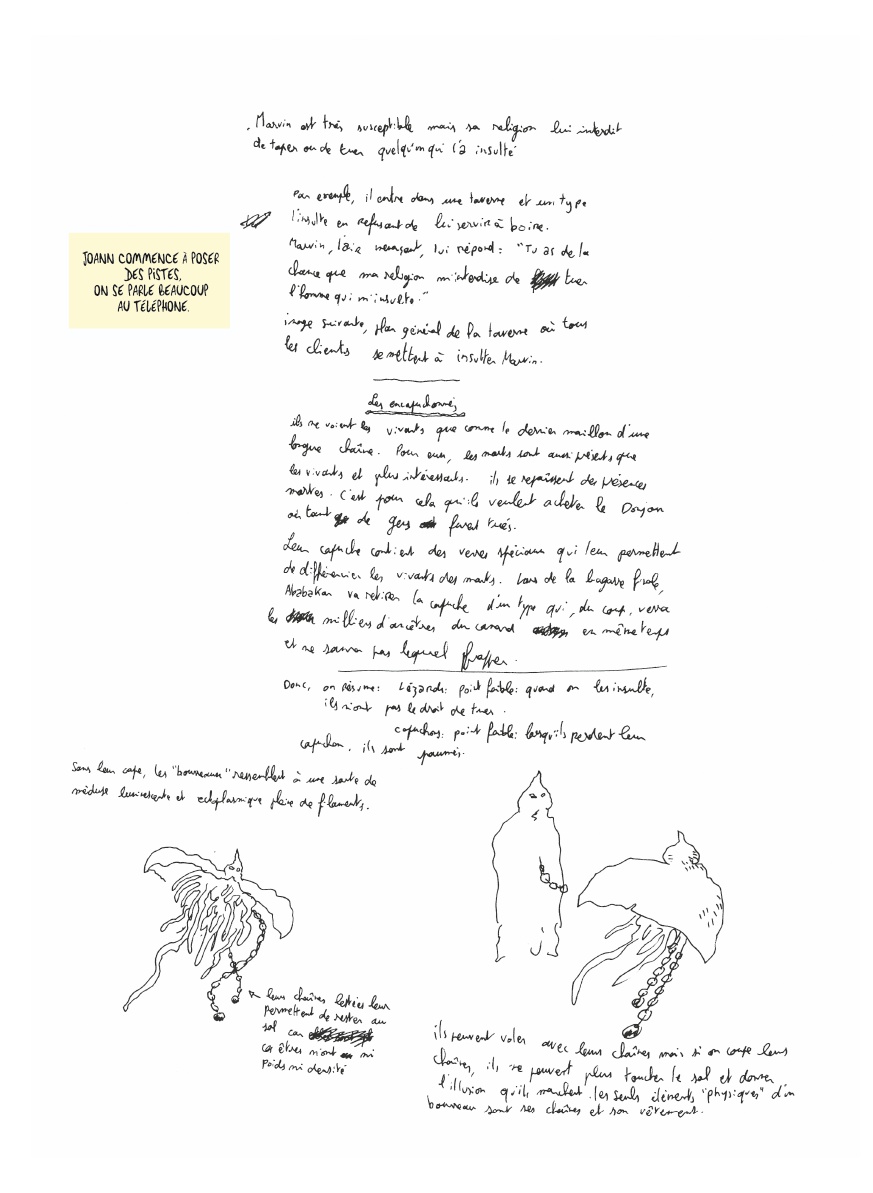 . Marvin est très susceptible mais sa religion lui interdit
de taper ou de tuer quelqu'un qui l'a insulté
Par exemple, il entre dans une taverne et un type
l'insulte en refusant de lui servir à boire.
Marvin, l'air menaçant, lui répond : "Tu as de la
chance que ma religion m'interdise de tuer
l'homme qui m'insulte."
image suivante, plan général de la taverne où tous
les clients se mettent à insulter Marvin.
JOANN COMMENCE À POSER
DES PISTES,
ON SE PARLE BEAUCOUP
AU TÉLÉPHONE.
Les encapuchonnés
ils ne voient les vivants que comme le dernier maillon d'une
longue chaîne. Pour eux, les morts sont aussi présents que
les vivants et plus intéressants. ils se repaissent des présences
mortes. C'est pour cela qu'ils veulent acheter le Donjon
où tant de gens furent tués.
Leur capuche contient des verres spéciaux qui leur permettent
de différencier les vivants des morts. Lors de la bagarre finale,
Ababakar va retirer la capuche d'un type qui, du coup, verra
les milliers d'ancêtres du canard en même temps
et ne saura pas lequel frapper.
Donc, on résume : Lézards : point faible : quand on les insulte,
ils n'ont pas le droit de tuer.
capuchons : point faible : lorsqu'ils perdent leur
capuchon, ils sont paumés.
Sans leur cape, les "bourreaux" ressemblent à une sorte de
méduse luminescente et ectoplasmique pleine de filaments.
leurs chaînes lestées leur
permettent de rester au
sol car
ca êtres n'ont ni
poids ni densité
ils peuvent voler avec leurs chaînes mais si on coupe leurs
chaînes, ils ne peuvent plus toucher le sol et donner
l'illusion qu'ils marchent. les seuls éléments "physiques" d'un
bourreau sont ses chaînes et son vêtement.